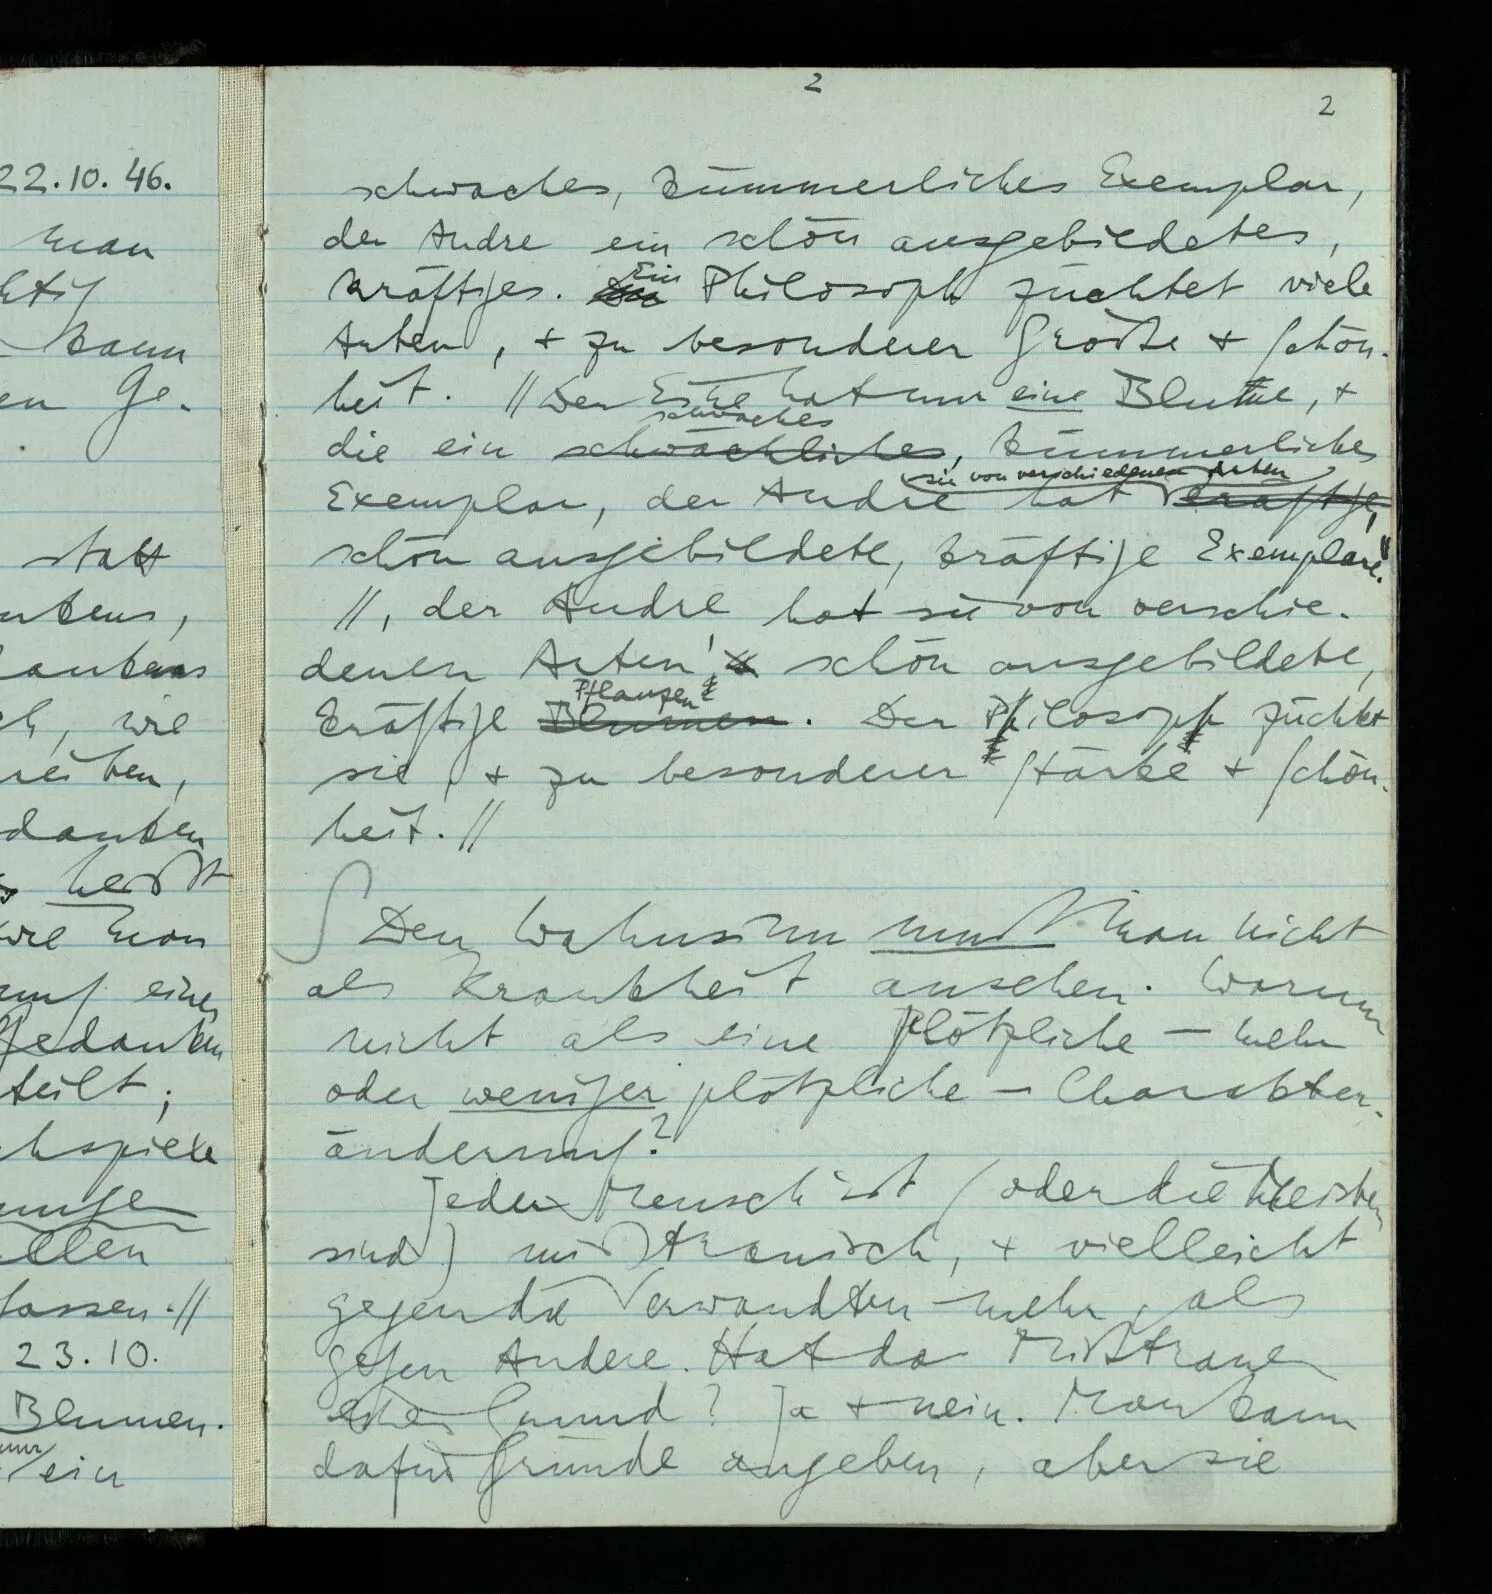 22.10.46.
man
kann
en Ge-
statt
ch, wie
danken
heißt
wie man
eines
Gedanken
teilt;
lassen.//
23.10.
Blumen.
nur
ein
2
2
schwaches, kümmerliches Exemplar,
der Andre ein schön ausgebildetes,
kräftiges. Ein Philosoph züchtet viele
Arten, + zu besonderer Größe + Schön-
heit. // Der Eine hat nur eine Blume, +
schwaches
die ein schwächliches, kümmerliches
sie von verschiedenen Arten
Exemplar, der Andre hat kräftige,
schön ausgebildete, kräftige Exemplare."
//, der Andre hat sie von verschie-
denen Arten, schön ausgebildete,
Pflanzen
kräftige Blumen. Der Philosoph züchtet
sie, + zu besonderer Stärke + Schön-
heit.//
∫ Den Wahnsinn muß man nicht
als Krankheit ansehen. Warum
nicht als eine plötzliche – mehr
oder weniger plötzliche – Charakter-
änderung?
Jeder Mensch ist (oder die Meisten
sind) mißtrauisch, + vielleicht
gegen die Verwandten mehr, als
gegen Andere. Hat das Mißtrauen
einen Grund? Ja + nein. Man kann
dafür Gründe angeben, aber sie